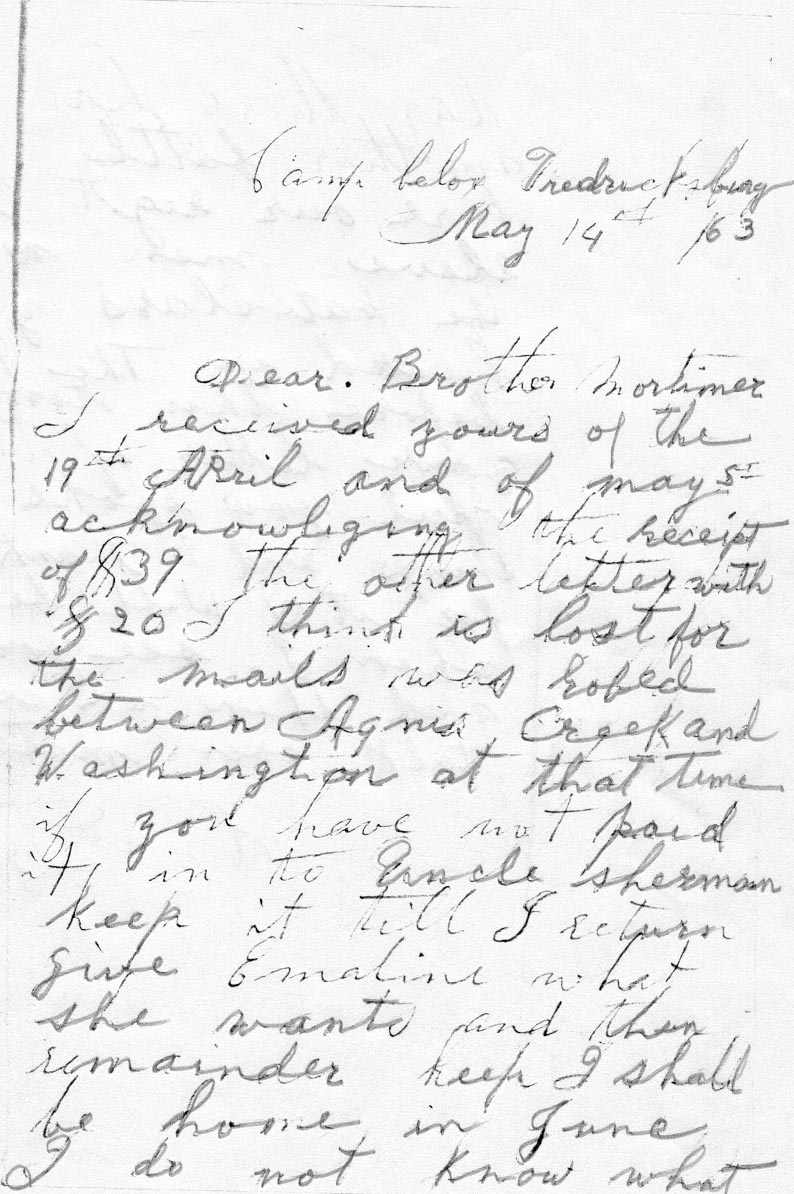 Camp below Fredricksburg
May 14th /63
Dear. Brother Mortimer
I received yours of the
19th April and of may 5t
acknowleging the receipt
of $39 the other letter with
$20 I think is lost for
the mails was Robed
between Creek and
Washington at that time
if you have not paid
it, in to Uncle sherman
keep it till I return
give Emaline what
she wants and then
remainder keep I shall
be home in June
I do not know what